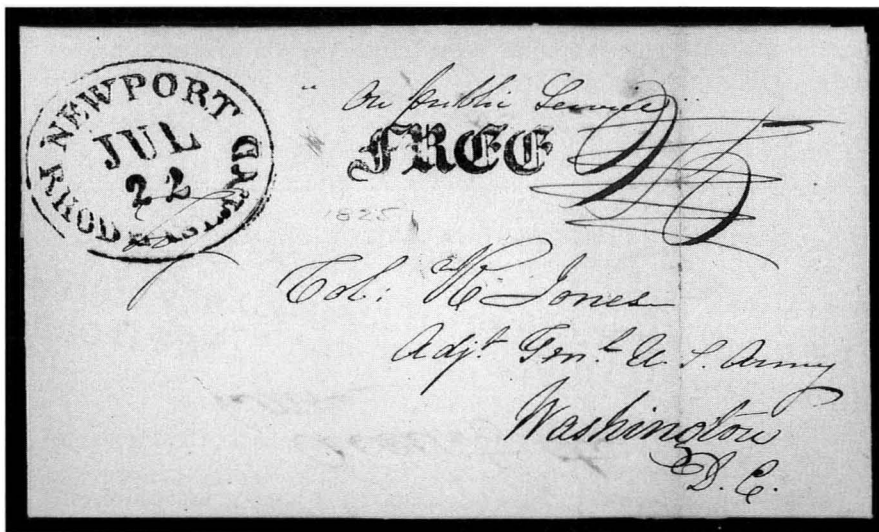 NEWPORT
JUL
22
RHODE ISLAND
"On public Service"
FREE
25
1825
Col: R. Jones
Adjt Genl U. S. Army
Washington
D. C.